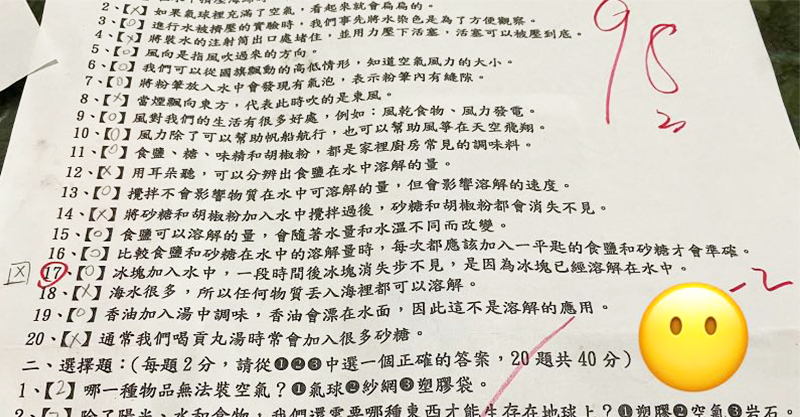 2、【X】如果氣球裡充滿了空氣，看起來就會扁扁的。
3、【O】進行水被擠壓的實驗時，我們事先將水染色是為了方便觀察。
4、【X】將裝水的注射筒出口處堵住，並用力壓下活塞，活塞可以被壓到底。
5、【O】風向是指風吹過來的方向。
6、【O】我們可以從國旗飄動的高低情形，知道空氣風力的大小。
7、【O】將粉筆放入水中會發現有氣泡，表示粉筆內有縫隙。
8、【X】當煙飄向東方，代表此時吹的是東風。
9、【O】風對我們的生活有很多好處，例如：風乾食物、風力發電。
10、【O】風力除了可以幫助帆船航行，也可以幫助風箏在天空飛翔。
11、【O】食鹽、糖、味精和胡椒粉，都是家裡廚房常見的調味料。
12、【X】用耳朵聽，可以分辨出食鹽在水中溶解的量。
13、【O】攪拌不會影響物質在水中可溶解的量，但會影響溶解的速度。
14、【X】將砂糖和胡椒粉加入水中攪拌過後，砂糖和胡椒粉都會消失不見。
15、【O】食鹽可以溶解的量，會隨著水量和水溫不同而改變。
16、【O】比較食鹽和砂糖在水中的溶解量時，每次都應該加入一平匙的食鹽和砂糖才會準確。
X 17、【O】冰塊加入水中，一段時間後冰塊消失步不見，是因為冰塊已經溶解在水中。
18、【X】海水很多，所以任何物質丟入海裡都可以溶解。
19、【O】香油加入湯中調味，香油會漂在水面，因此這不是溶解的應用。
20、【X】通常我們喝貢丸湯時常會加入很多砂糖。
二、選擇題：(每題2分，請從❶❷❸中選一個正確的答案，20題共40分)
1、【2】哪一種物品無法裝空氣？❶氣球❷紗網❸塑膠袋。
2、【2】除了陽光、水和食物，我們還需要哪種東西才能生存在地球上？❶塑膠❷空氣❸岩石。
98
-2